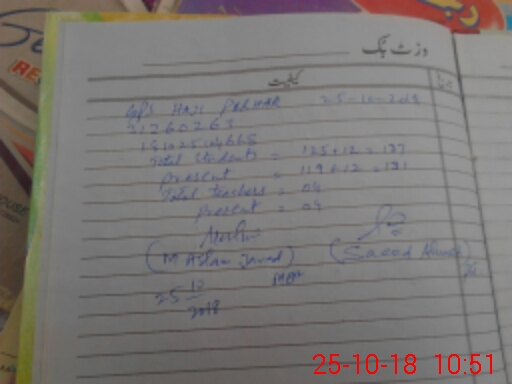 وزٹ بک
کیفیت
GPS HAJI PARHAR 25-10-2018
31260263
Total Students = 125+12 = 137
Present = 119+12 = 131
Total teachers = 04
Present = 04
(M Aslam Javed) (Saeed Ahmed)
25 10
2018
25-10-18 10:51